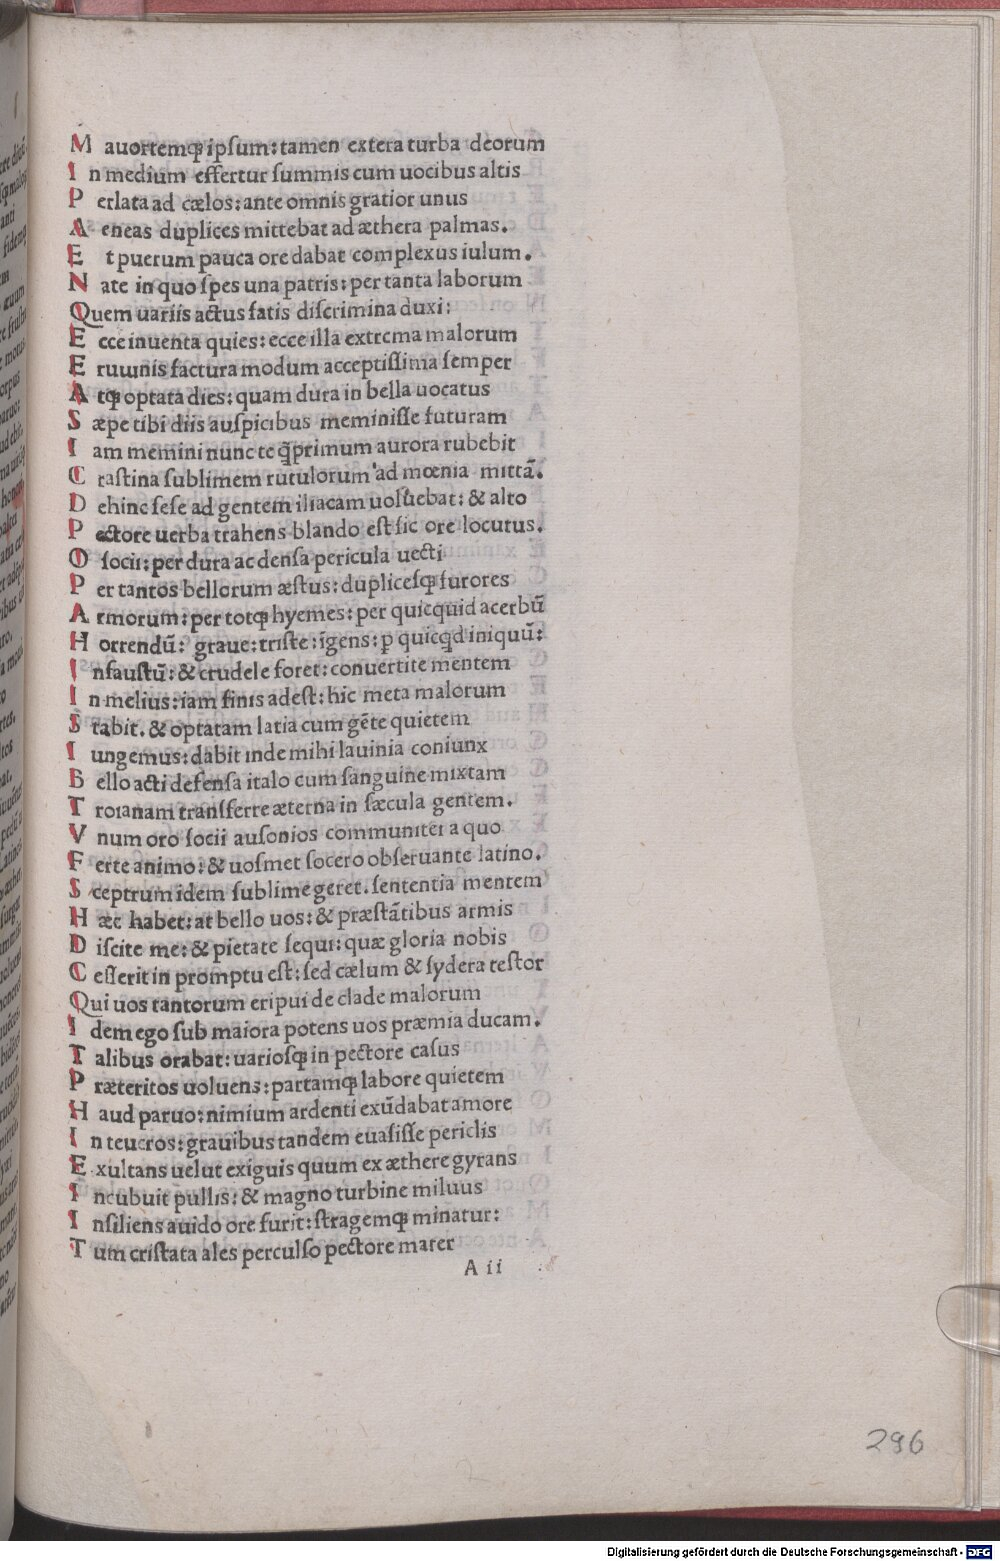 M auortemqꝫ ipsum: tamen extera turba deorum
I n medium effertur summis cum uocibus altis
P erlata ad cælos: ante omnis gratior unus
A eneas duplices mittebat ad æthera palmas.
E t puerum pauca ore dabat complexus iulum.
N ate in quo spes una patris: per tanta laborum
Quem uariis actus fatis discrimina duxi:
E cce inuenta quies: ecce illa extrema malorum
E ruunis factura modum acceptissima semper
A tqꝫ optata dies: quam dura in bella uocatus
S æpe tibi diis auspicibus meminisse futuram
I am memini nunc te q̄primum aurora rubebit
C rastina sublimem rutulorum ad mœnia mittā.
D ehinc sese ad gentem iliacam uoluebat: & alto
P ectore uerba trahens blando est sic ore locutus.
O socii: per dura ac densa pericula uecti
P er tantos bellorum æstus: duplicesqꝫ furores
A rmorum: per totqꝫ hyemes: per quicquid acerbū
H orrendū: graue: triste: īgens: ꝑ quicq̇d iniquū:
I nfaustū: & crudele foret: conuertite mentem
I n melius: iam finis adest: hic meta malorum
S tabit. & optatam latia cum gēte quietem
I ungemus: dabit inde mihi lauinia coniunx
B ello acti defensa italo cum sanguine mixtam
T roianam transferre æterna in sæcula gentem.
V num oro socii ausonios communiter a quo
F erte animo: & uosmet socero obseruante latino.
S ceptrum idem sublime geret. sententia mentem
H æc habet: at bello uos: & præstātibus armis
D iscite me: & pietate sequi: quæ gloria nobis
C esserit in promptu est: sed cælum & sydera testor
Qui uos tantorum eripui de clade malorum
I dem ego sub maiora potens uos præmia ducam.
T alibus orabat: uariosqꝫ in pectore casus
P ræteritos uoluens: partamqꝫ labore quietem
H aud paruo: nimium ardenti exūdabat amore
I n teucros: grauibus tandem euasisse periclis
E xultans uelut exiguis quum ex æthere gyrans
I ncubuit pullis: & magno turbine miluus
I nsiliens auido ore furit: stragemqꝫ minatur:
T um cristata ales perculso pectore mater
A ii
296
Digitalisierung gefördert durch die Deutsche Forschungsgemeinschaft - DFG